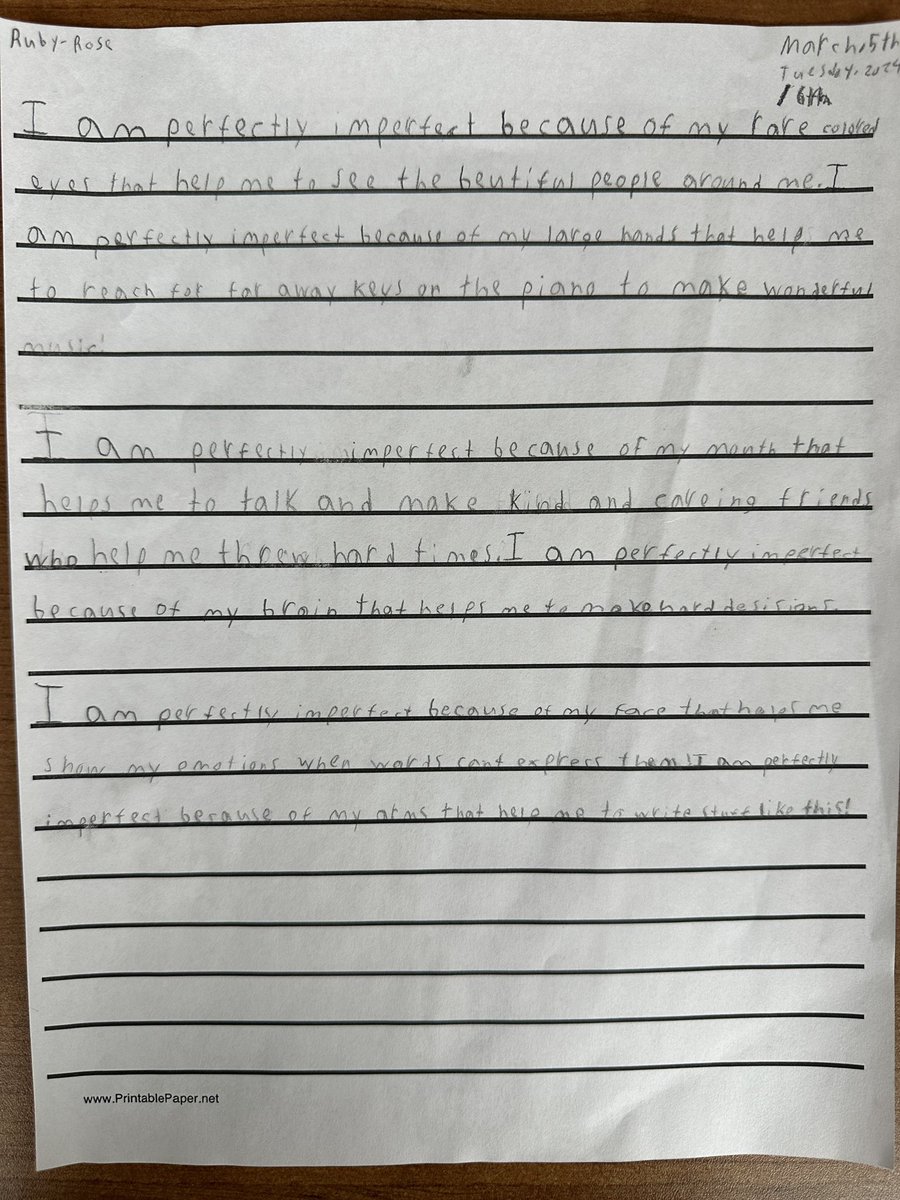 Ruby-Rose
March,5th
Tuesday,2024
6th
I am perfectly imperfect because of my rare colored
eyes that help me to see the beutiful people around me. I
am perfectly imperfect because of my large hands that help me
to reach for far away keys on the piano to make wonderful
music!
I am perfectly imperfect because of my mouth that
helps me to talk and make kind and careing friends
who help me threw hard times. I am perfectly imperfect
because of my brain that helps me to make hard desisions.
I am perfectly imperfect because of my face that helps me
show my emotions when words cant express them! I am perfectly
imperfect because of my arms that help me to write stuff like this!
www.PrintablePaper.net